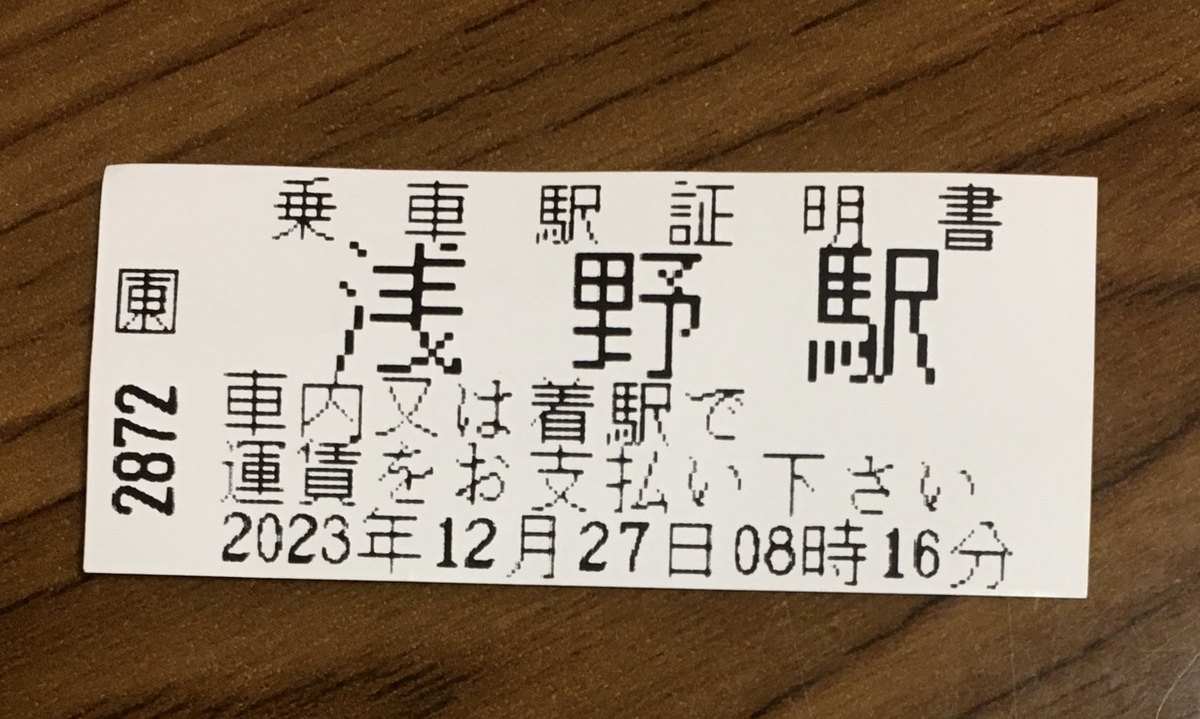 乗車駅証明書
浅野駅
車内又は着駅で
運賃をお支払い下さい
2023年12月27日08時16分
東
2872